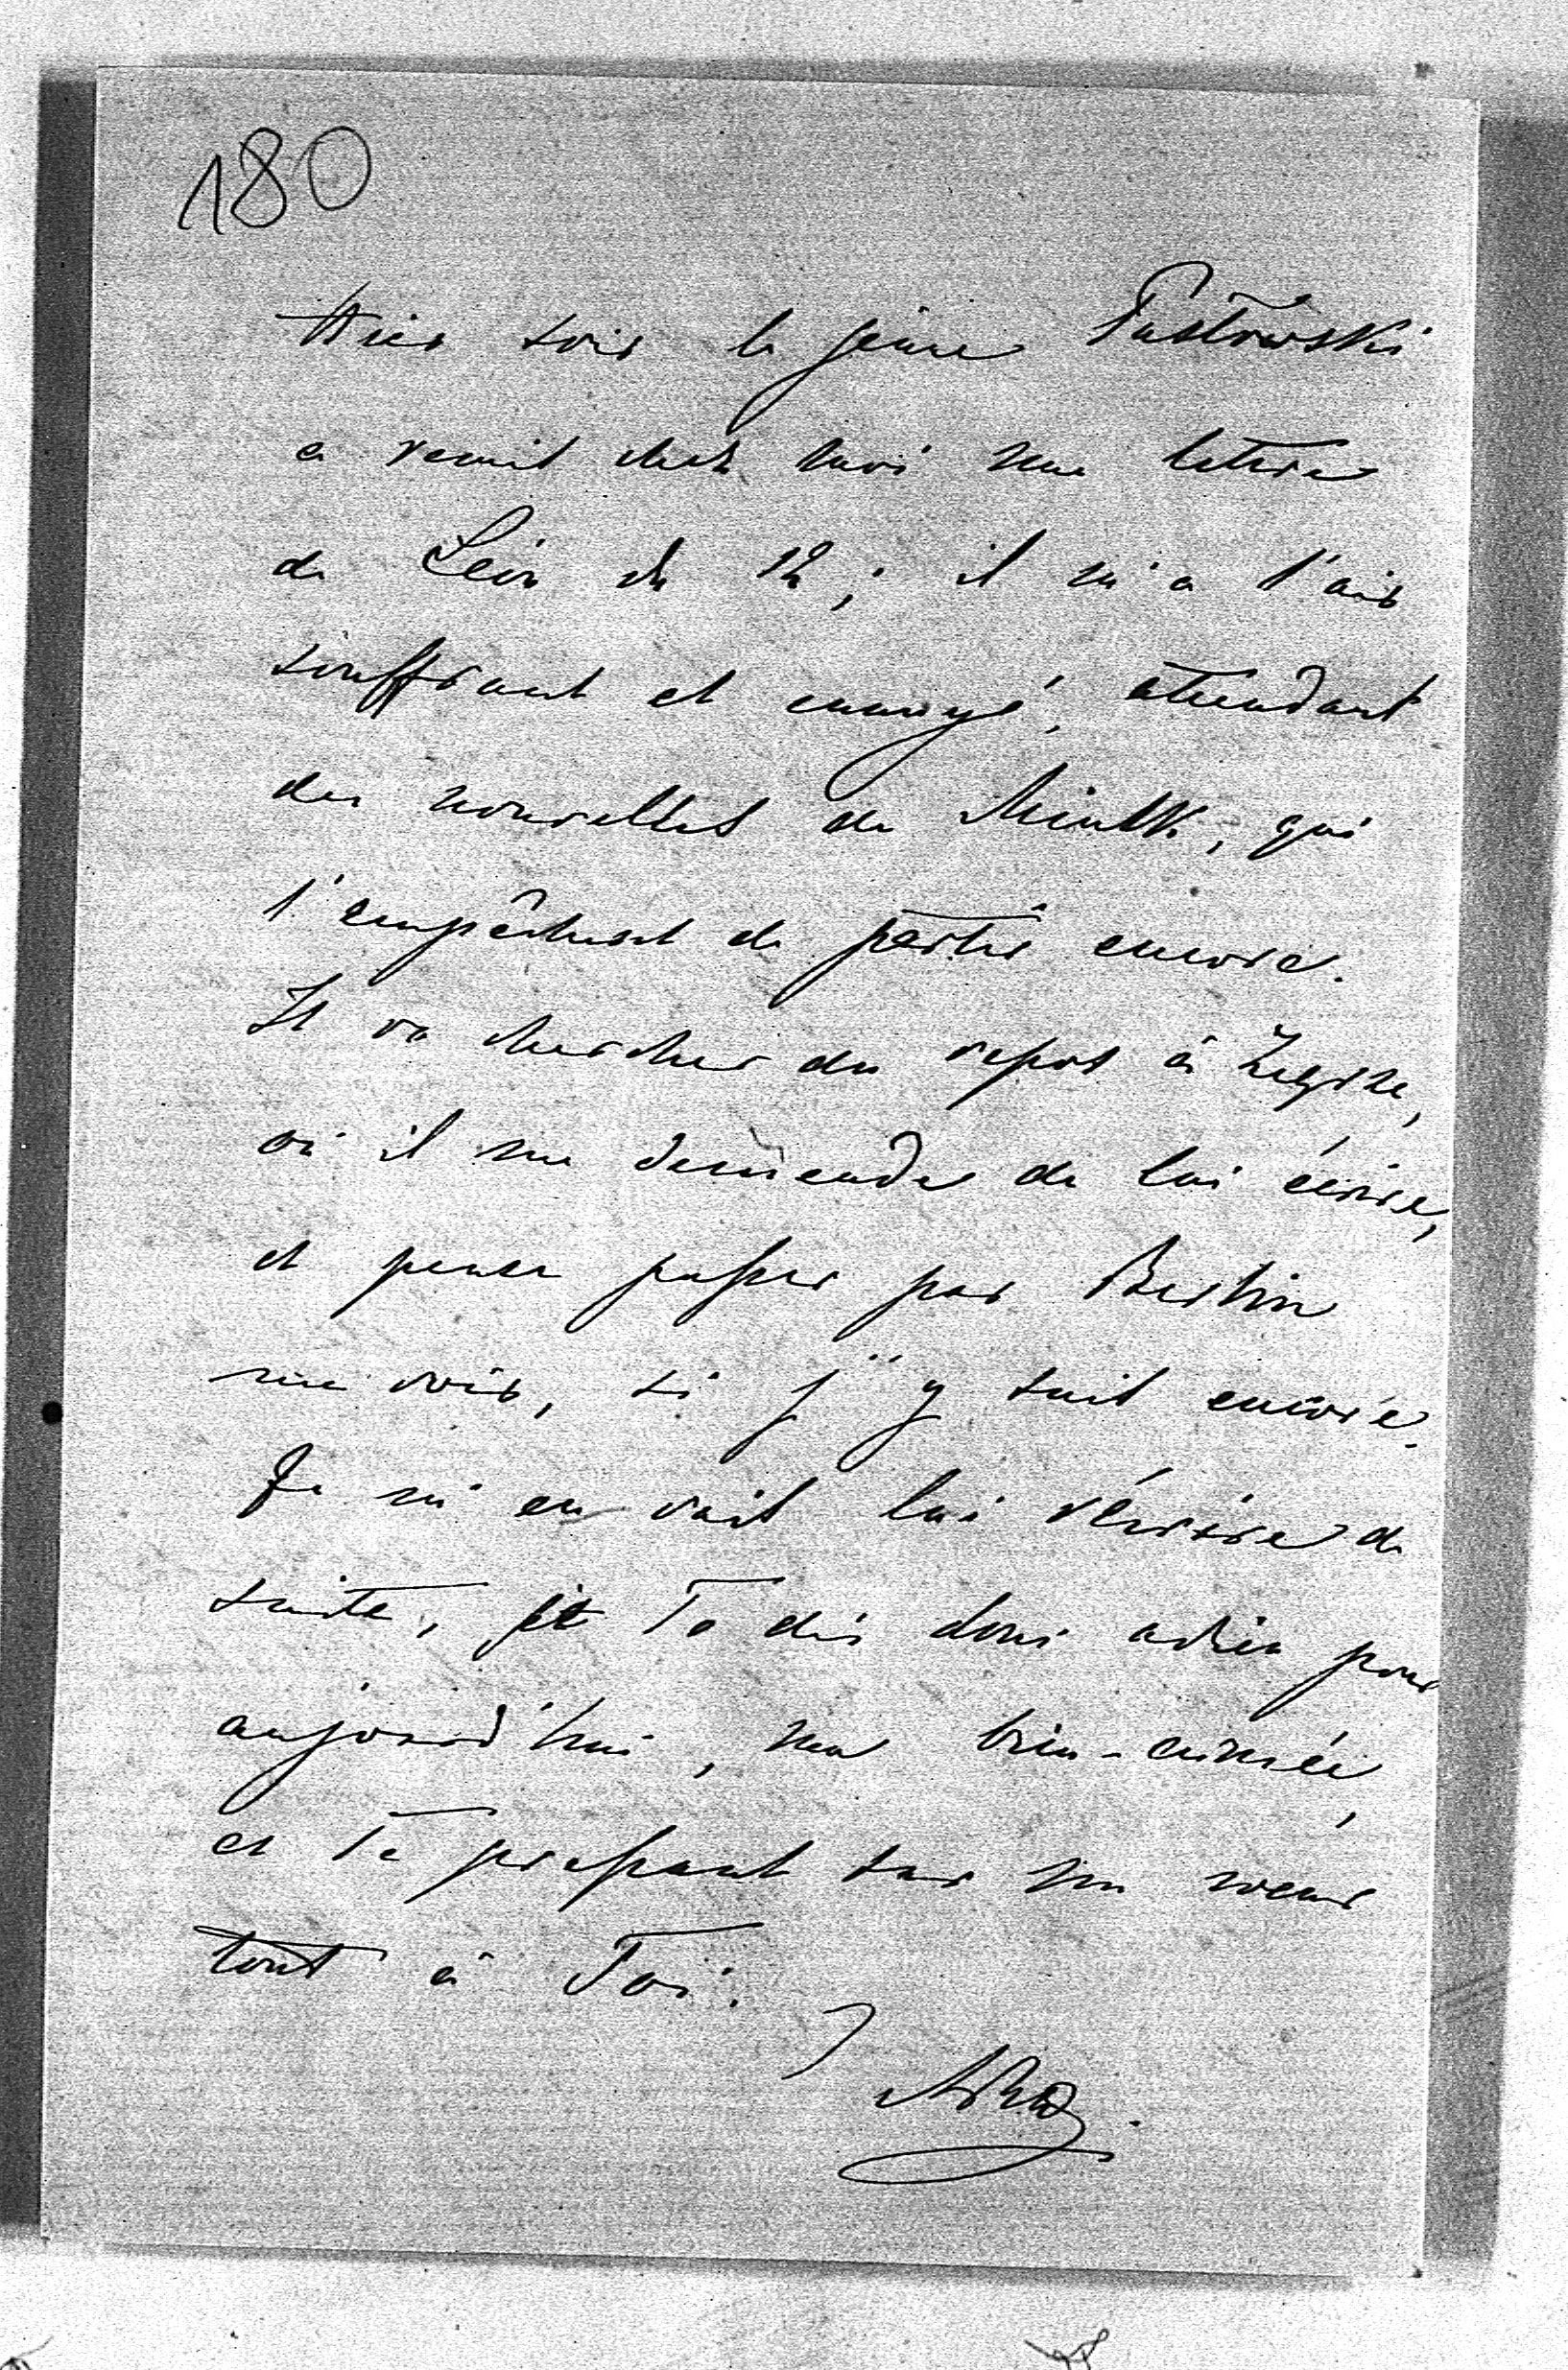 180
Hier soir le jeune Pustowski
a remis chez moi une lettre
de Léon du 12; il m'a l'air
souffrant et ennuyé, attendant
des nouvelles de Minsk, qui
l'empêchent de partir encore.
Il va chercher du repos à Zegrze,
où il me demande de lui écrire,
et pense passer par Berlin
me voir, si j'y suis encore.
Je m'en vais lui récrire de
suite, et Te dis donc adieu pour
aujourd'hui, ma bien-aimée,
et Te pressant sur mon coeur
tout à Toi.